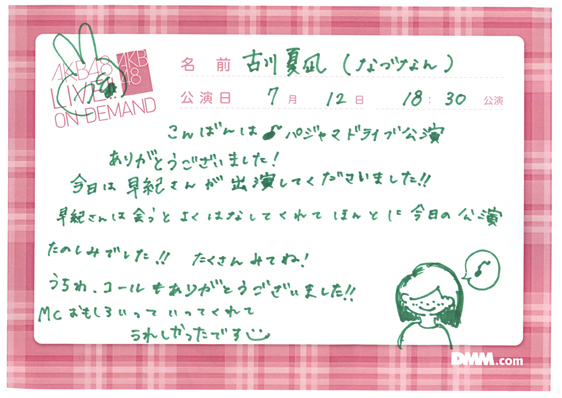 AKB48
LIVE!!
ON DEMAND
AKB
48
名 前 古川夏凪 (なづなん)
公演日 7月 12日 18:30 公演
こんばんは♪パジャマドライブ公演
ありがとうございました!
今日は早紀さんが出演してくださいました!!
早紀さんは会うとよくはなしてくれてほんとに今日の公演
たのしみでした!! たくさんみてね!
うちわ、コールもありがとうございました!!
MCおもしろいっていってくれて
うれしかったです
DMM.com